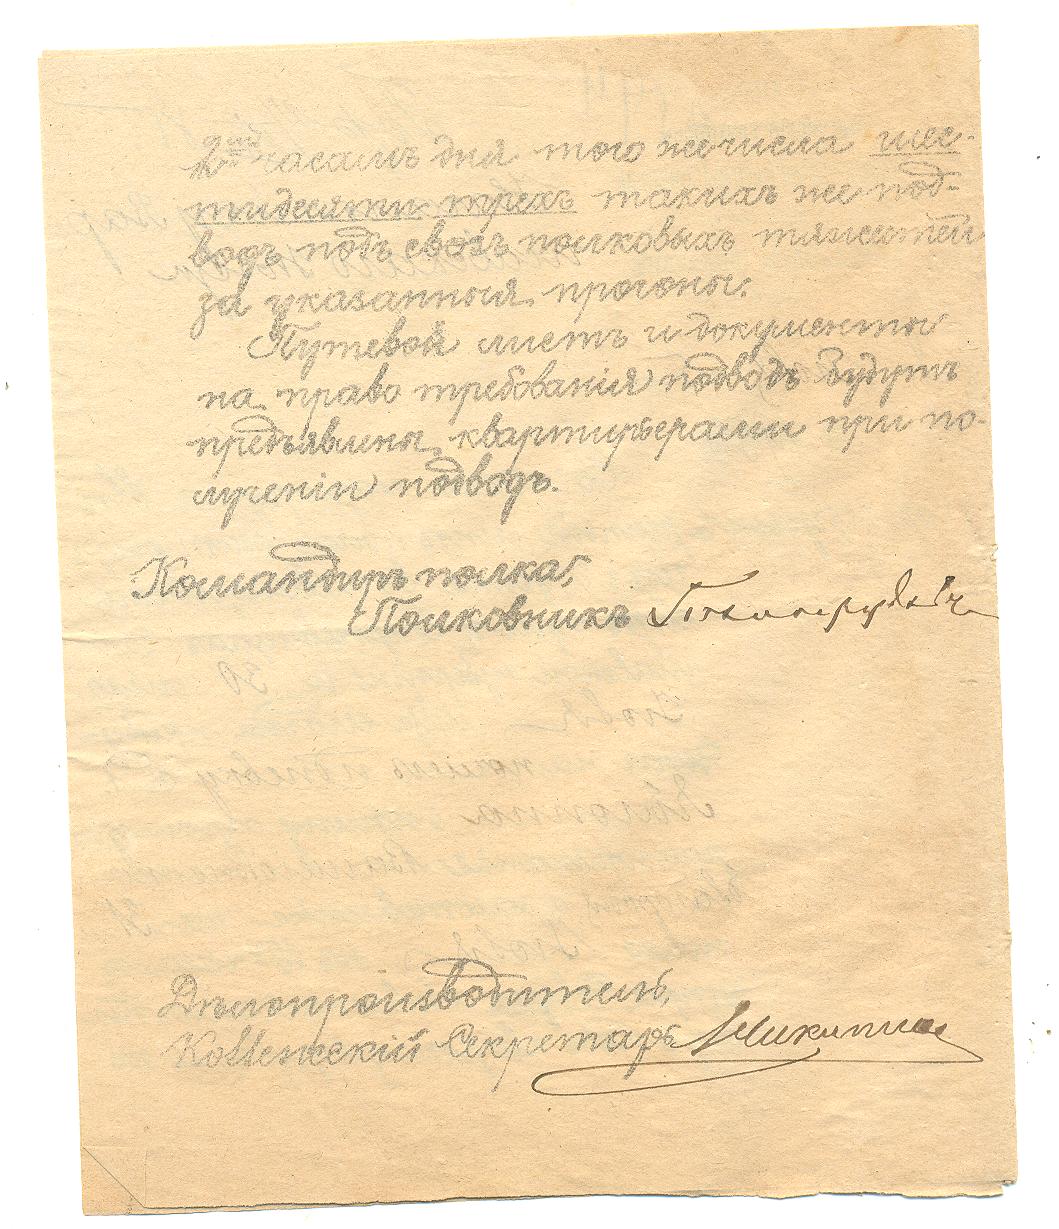 2мъ часамъ дня того же числа шес-
тидесяти трехъ такихъ же под-
водъ подъ свозъ полковыхъ тяжестей
за указанныя прогоны.
Путевой листъ и документы
на право требованія подводъ будутъ
предъявлены квартирьерами при по-
лученіи подводъ.
Командиръ полка,
Полковникъ
Дѣлопроизводитель,
Коллежскій Секретарь Никитин